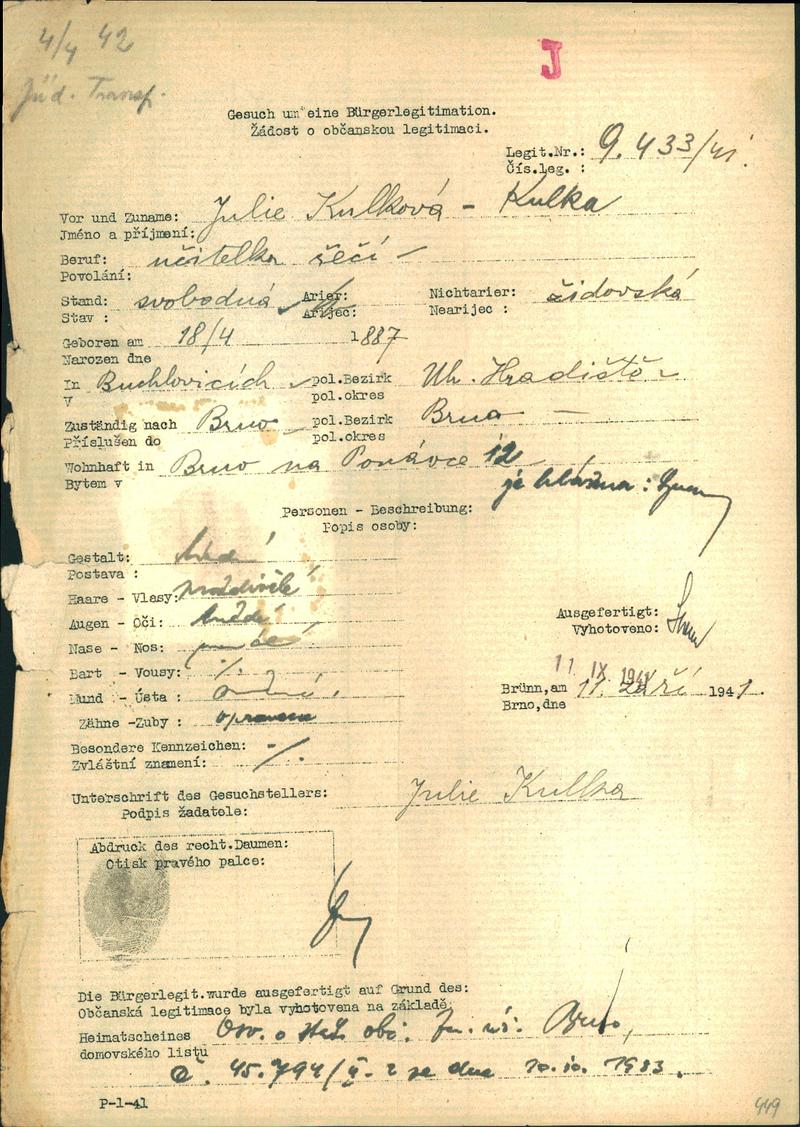 4/4 42
Jüd. Transp.
J
Gesuch um eine Bürgerlegitimation.
Žádost o občanskou legitimaci.
Legit.Nr.: 9.433/41.
Čís.leg. :
Vor und Zuname: Julie Kulková - Kulka
Jméno a příjmení:
Beruf: učitelka řečí
Povolání:
Stand: svobodná Arier: Nichtarier: židovská
Stav : Arijec: Nearijec :
Geboren am 18/4 1887
Narozen dne
In Buchlovicích pol.Bezirk Uh. Hradiště
V pol.okres
Zuständig nach Brno pol.Bezirk Brno
Příslušen do pol.okres
Wohnhaft in Brno na Ponávce 12
Bytem v je hlášena:
Personen - Beschreibung:
Popis osoby:
Gestalt:
Postava :
Haare - Vlasy: prošedivělé
Augen - Oči: hnědé
Nase - Nos:
Bart - Vousy: ./.
Mund - Ústa :
Zähne -Zuby :
Ausgefertigt:
Vyhotoveno:
11 IX 1941
Brünn,am 11. září 1941.
Brno,dne
Besondere Kennzeichen: -/.
Zvláštní znamení:
Unterschrift des Gesuchstellers: Julie Kulka
Podpis žadatele:
Abdruck des recht.Daumen:
Otisk pravého palce:
Die Bürgerlegit.wurde ausgefertigt auf Grund des:
Občanská legitimace byla vyhotovena na základě:
Heimatscheines Osv. o stát. obč. Brno,
domovského listu
č. 45.794/ ze dne
P-1-41
449